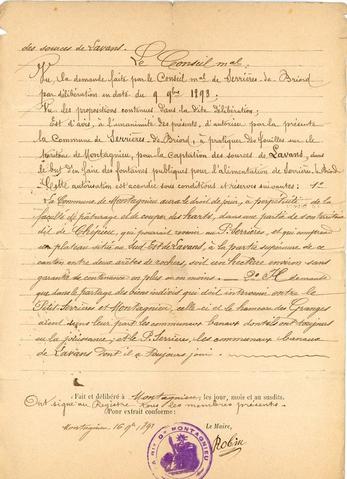 des sources de Lavans. Le Conseil mal.
Vu, la demande faite par le Conseil mal de Serrières-de-Briord
par délibération en date du 9 9bre 1898:
Vu les propositions contenues dans la dite délibération;
Est d'avis, à l'unanimité des présents, d'autoriser par la présente
la Commune de Serrières-de-Briord, à pratiquer des fouilles sur le
territoire de Montagnieu, pour la captation des sources de Lavans, dans
le but d'en faire des fontaines publiques pour l'alimentation de Serrières-de-Briord
Cette autorisation est accordée sous conditions et réserves suivantes: 1°
La Commune de Montagnieu aura le droit de jouir, à perpétuité de la
faculté de pâturage et de couper des dans une partie de son territoire
dit de qui pourrait revenir au P. Serrières, et qui comprend
un plateau situé au Sud Est de Lavans, à la partie supérieure de ce
canton entre deux arêtes de roches, soit un hectare environ sans
garantie de contenance en plus ou en moins. 2° Il demande
que dans le partage des biens indivis qui doit intervenir entre le
Petit Serrières et Montagnieu, celle-ci et le hameau des Granges
aient dans leur part les communaux dont ils ont toujours
eu la jouissance; et le P. Serrières, les communaux
de Lavans dont il a toujours joui.
Fait et délibéré à Montagnieu, les jour, mois et an susdits.
Ont signé au Registre tous les membres présents.
Pour extrait conforme:
Montagnieu 16 9bre 1898
Le Maire,
Robin
MRIE DE MONTAGNIEU